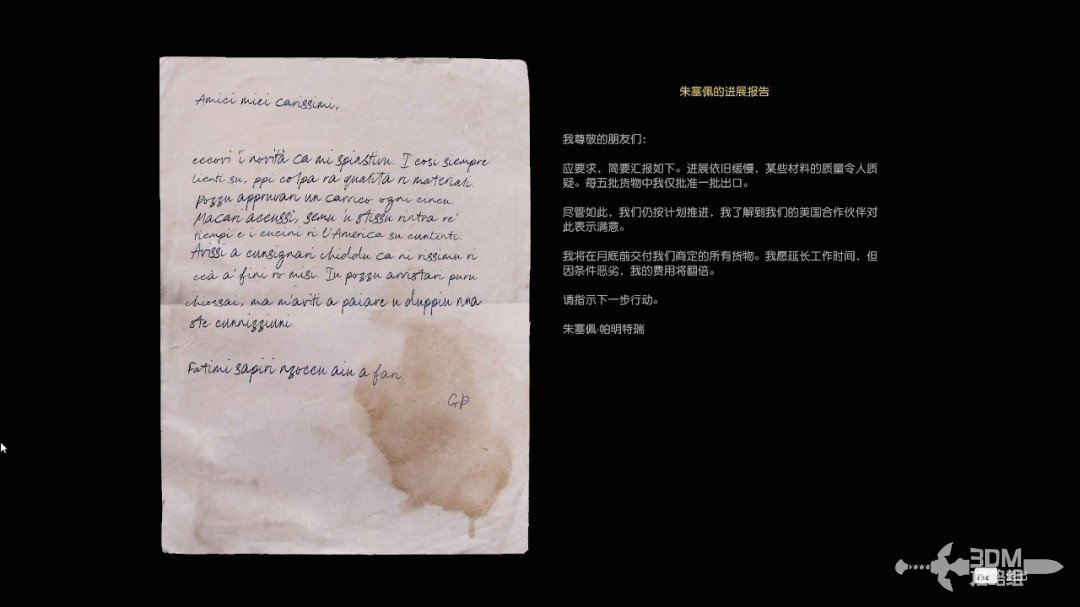 Amici mici carissimi,
eccovi 'i novità ca mi spiastivu. I cosi siempre
lienti su, ppi colpa ra qualità ri materiali.
Pozzu appruvari un carrico ogni cincu.
Macari accussì, semu 'u stissu rintra re'
tiempi e i cucini ri l'America su cuntenti.
Avissi a cunsignari chiddu ca ni rissimu ri
ccà a' fini ro misi. Iu pozzu arristari puru
chiossai, ma m'aviti a paiare u duppiu nna
ste cunnizziuni.
Fatimi sapiri nzoccu aiu a fari.
GP
朱塞佩的进展报告
我尊敬的朋友们：
应要求，简要汇报如下。进展依旧缓慢，某些材料的质量令人质
疑。每五批货物中我仅批准一批出口。
尽管如此，我们仍按计划推进，我了解到我们的美国合作伙伴对
此表示满意。
我将在月底前交付我们商定的所有货物。我愿延长工作时间，但
因条件恶劣，我的费用将翻倍。
请指示下一步行动。
朱塞佩·帕明特瑞
3DM
Esc